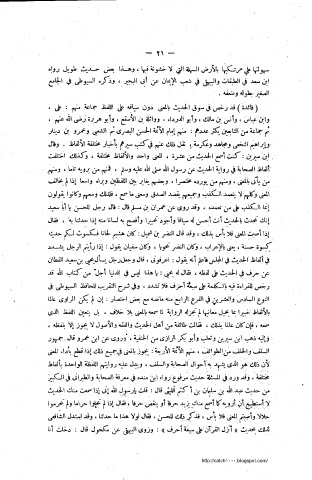 — ٢١ —
سهولتها على مرتكبها بالأرض السهلة التي لا خشونة فيها ، وهذا بعض حديث طويل رواه
ابن سعد في الطبقات والبيهقي في شعب الإيمان عن أبي البجير ، وذكره السيوطي في الجامع
الصغير بطوله وضعفه .
( فائدة ) قد رخص في سوق الحديث بالمعنى دون سياقه على اللفظ جماعة منهم : علي ،
وابن عباس ، وأنس بن مالك ، وأبو الدرداء ، وواثلة بن الأسقع ، وأبو هريرة رضي الله عنهم ،
ثم جماعة من التابعين يكثر عددهم : منهم إمام الأئمة الحسن البصري ثم الشعبي وعمرو بن دينار
وإبراهيم النخعي ومجاهد وعكرمة ، نقل ذلك عنهم في كتب سيرهم بأخبار مختلفة الألفاظ . وقال
ابن سيرين : كنت أسمع الحديث من عشرة ، المعنى واحد والألفاظ مختلفة ، وكذلك اختلفت
ألفاظ الصحابة في رواية الحديث عن رسول الله صلى الله عليه وسلم ، فمنهم من يرويه تاما ، ومنهم
من يأتي بالمعنى ، ومنهم من يورده مختصرا ، وبعضهم يغاير بين اللفظين ويراه واسعا إذا لم يخالف
المعنى وكلهم لا يتعمد الكذب وجميعهم يقصد الصدق ومعنى ما سمع ، فلذلك وسعهم وكانوا يقولون
إنما الكذب على من تعمده . وقد روي عن عمران بن مسلم قال : قال رجل للحسن يا أبا سعيد
إنك تحدث بالحديث أنت أحسن له سياقا وأجود تحبيرا وأفصح به لسانا منه إذا حدثنا به ، فقال
إذا أصبت المعنى فلا بأس بذلك ، وقد قال النضر بن شميل : كان هشيم لحانا فكسوت لكم حديثه
كسوة حسنة ، يعني بالإعراب ، وكان النضر نحويا ، وكان سفيان يقول : إذا رأيتم الرجل يشدد
في ألفاظ الحديث في المجلس فاعلم أنه يقول : اعرفوني ، قال وجعل رجل يسأل يحيى بن سعيد القطان
عن حرف في الحديث على لفظه ، فقال له يحيى : يا هذا ليس في الدنيا أجل من كتاب الله قد
رخص للقراءة فيه بالكلمة على سبعة أحرف فلا تشدد ، وفي شرح التقريب للحافظ السيوطي في
النوع السادس والعشرين في الفرع الرابع منه مانصه مع بعض اختصار : إن لم يكن الراوي عالما
بالألفاظ خبيرا بما يحيل معانيها لم تجز له الرواية لما سمعه بالمعنى بلا خلاف . بل يتعين اللفظ الذي
سمعه ، فإن كان عالما بذلك ، فقالت طائفة من أهل الحديث والفقه والأصول لا يجوز إلا بلفظه ،
وإليه ذهب ابن سيرين وثعلب وأبو بكر الرازي من الحنفية ، وروي عن ابن عمرو قال جمهور
السلف والخلف من الطوائف ، منهم الأئمة الأربعة : يجوز بالمعنى في جميع ذلك إذا قطع بأداء المعنى
لأن ذلك هو الذي يشهد به أحوال الصحابة والسلف ، ويدل عليه روايتهم اللفظة الواحدة بألفاظ
مختلفة ، وقد ورد في المسألة حديث مرفوع رواه ابن منده في معرفة الصحابة والطبراني في الكبير
من حديث عبد الله بن سليمان بن أكثم الليثي قال : قلت يارسول الله إني إذا سمعت منك الحديث
لا أستطيع أن أرويه كما أسمع منك يزيد حرفا أو ينقص حرفا ، فقال إذا لم تحلوا حراما ولم تحرموا
حلالا وأصبتم المعنى فلا بأس ، فذكر ذلك للحسن ، فقال لولا هذا ما حدثنا ، وقد استدل الشافعي
لذلك بحديث « أنزل القرآن على سبعة أحرف » : وروى البيهقي عن مكحول قال : دخلت أنا